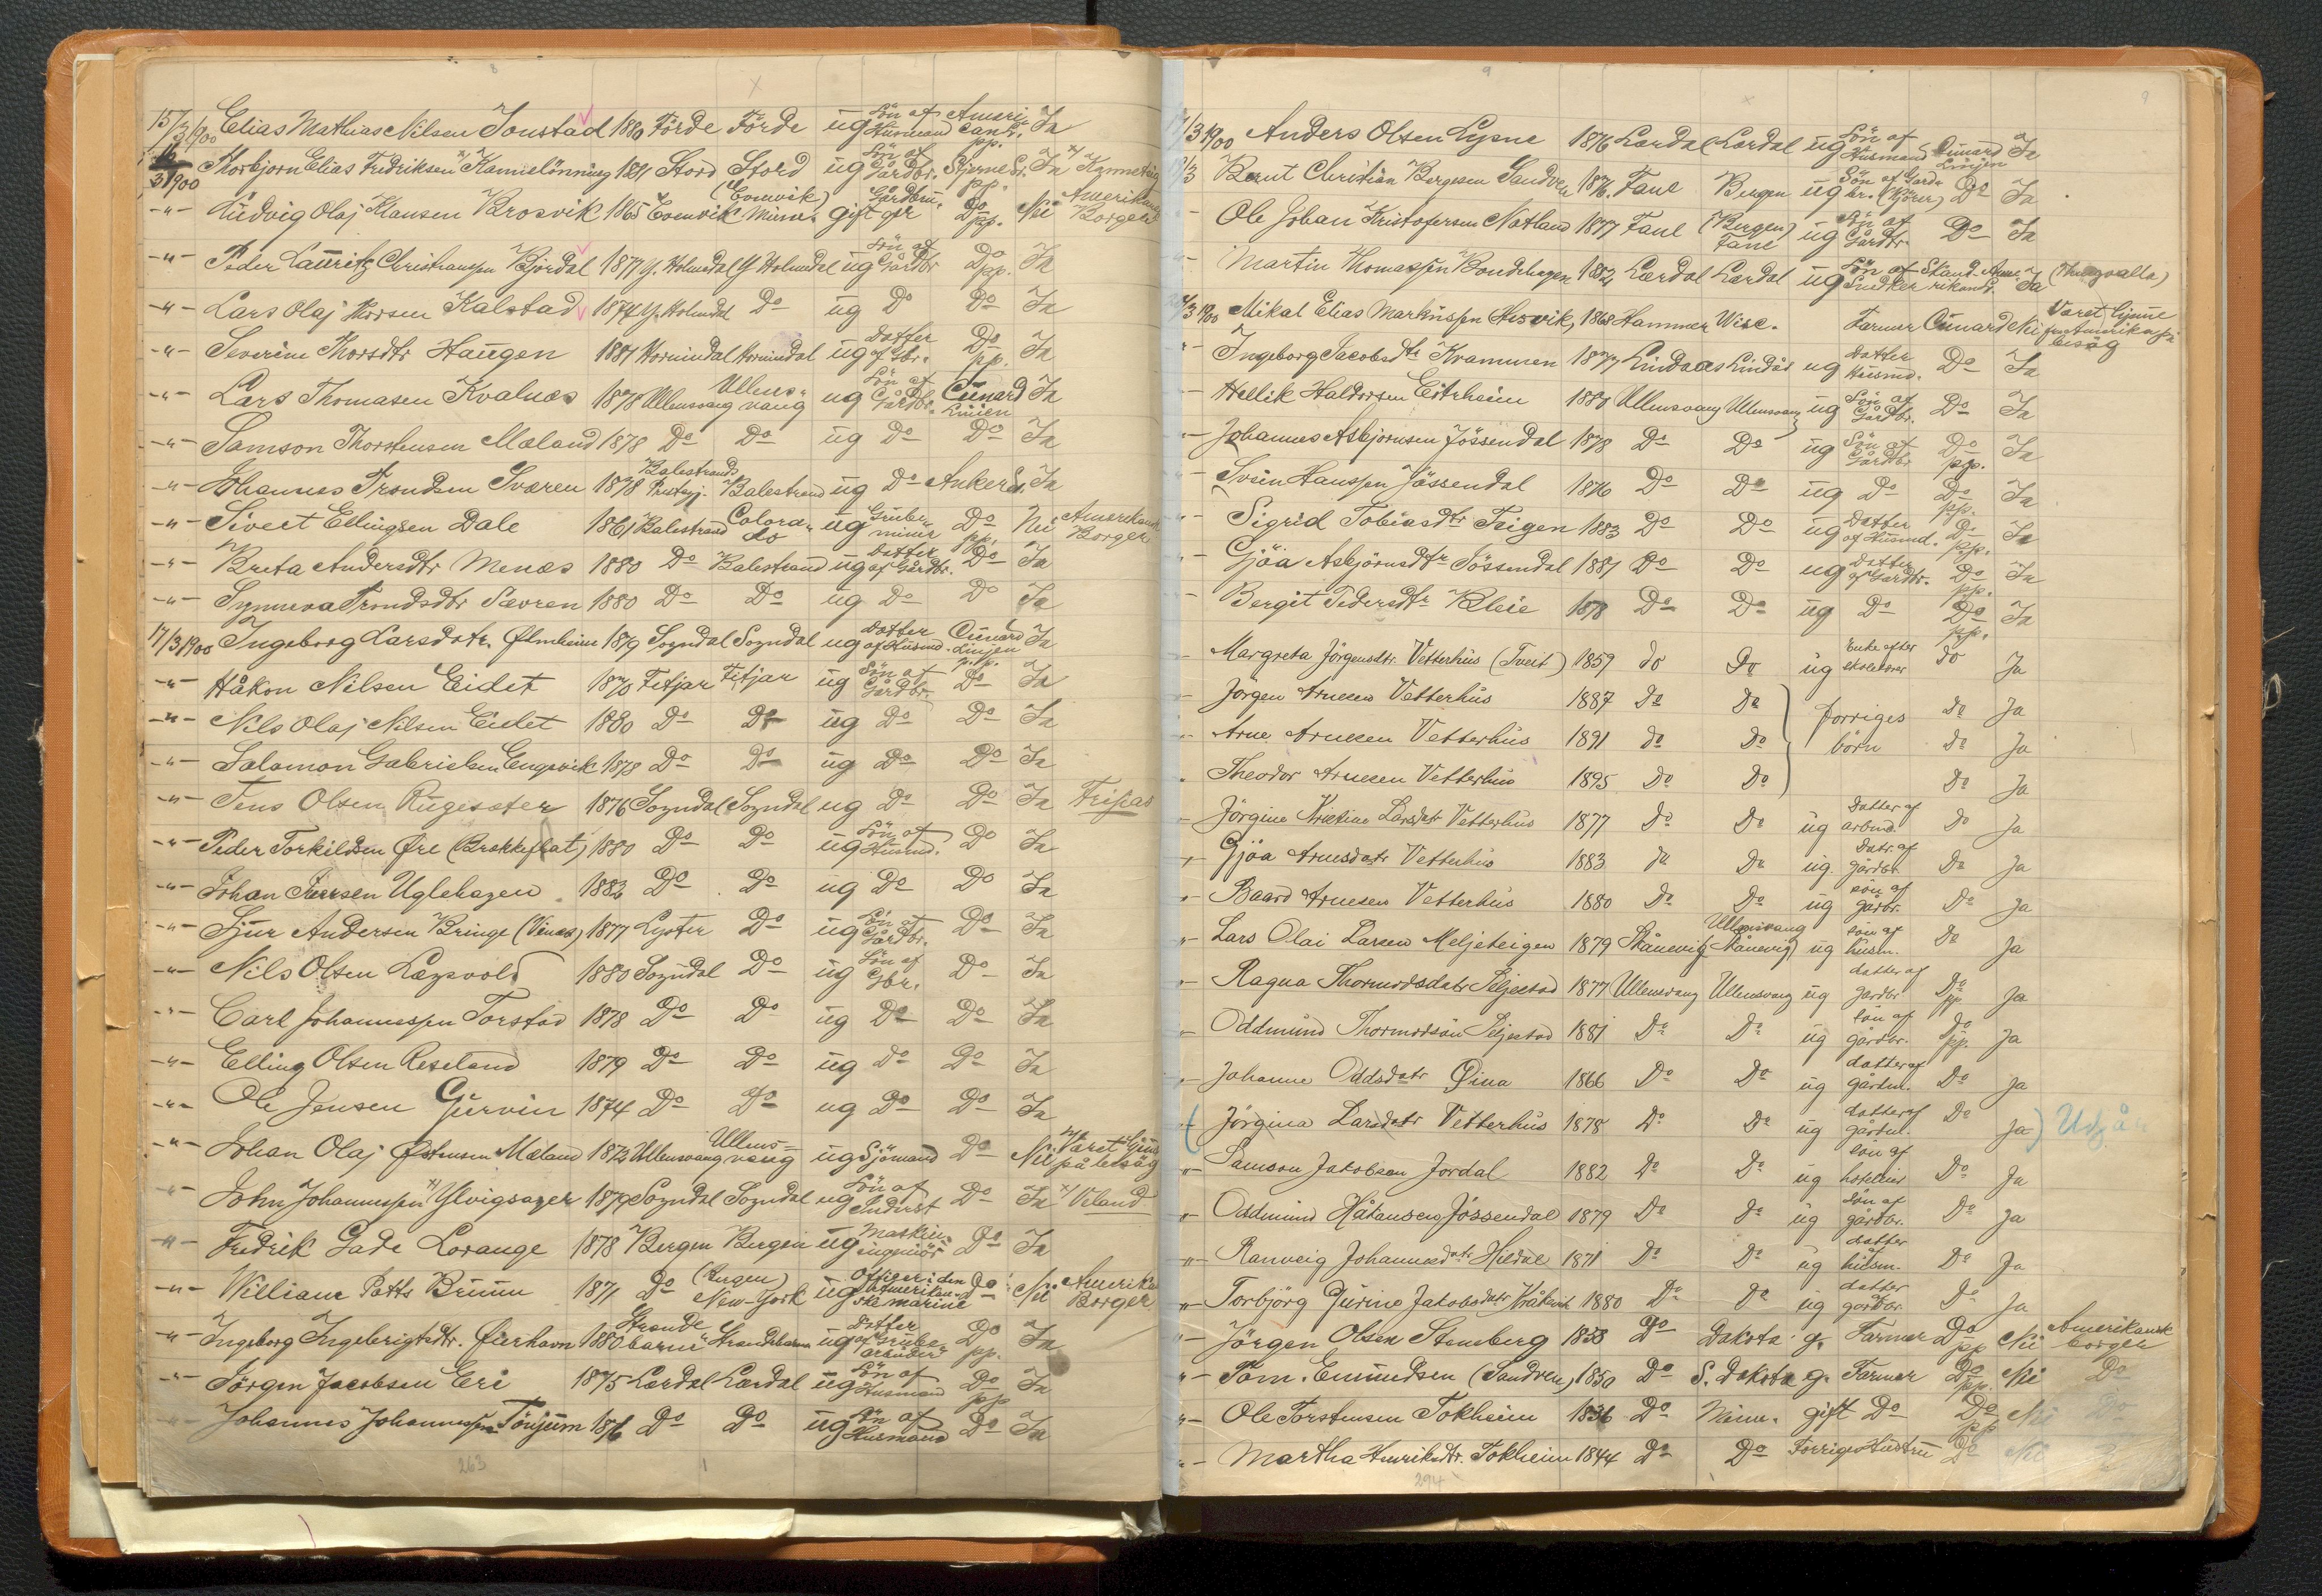 8
15/3 1900 Elias Mathias Nilsen Joustad 1880 Förde Förde ug Sön af Husmand Ameri canl. pp. Ja
16/3 1900 Thorbjorn Elias Fredriksen x) 1881 Stord Stord ug Sön af Gårdbr. Stjernel. pp. Ja x)
-"- Ludvig Olaj Klausen Brosvik 1865 Evenvik (Evenvik) Minn. gift Gårdbru- ger Do pp. Nei Amerikansk Borger
-"- Peder Lauritz Christianssen Björdal 1877 Y. Holmedal Y. Holmedal ug Sön af Gårdbr Do pp. Ja
-"- Lars Olaj Thorsen Kalstad 1874 Y. Holmedal Do ug Do Do Ja
-"- Severine Thorsdtr Haugen 1881 Hornindal Hornindal ug Datter af Gbr. Do pp. Ja
-"- Lars Thomasen Kvalnes 1878 Ullensvang Ullens- vang ug Sön af Gårdbr. Cunard Linien Ja
-"- Samson Thorstensen Mæland 1878 Do Do ug Do Do Ja
-"- Johannes Trondsen Sværen 1878 Balestrands Prestegj. Balestrand ug Do Ankerl. Ja
-"- Sivert Ellingsen Dale 1861 Balestrand Colora- do ug Grube- minør Do pp. Nei Amerikansk Borger
-"- Breta Andersdtr Menes 1880 Do Balestrand ug Datter af Gårdbr. Do Ja
-"- Synneva Trondsdtr Sævren 1880 Do Do ug Do Do Ja
17/3 1900 Ingeborg Larsdotr. Ølmheim 1879 Sogndal Sogndal ug Datter af Husmd. Cunard Linjen pp. Ja
-"- Håkon Nilsen Eidet 1870 Fitjar Fitjar ug Sön af Gårdbr. Do Ja
-"- Nils Olaj Nilsen Eidet 1880 Do Do ug Do Do Ja
-"- Salamon Gabrielsen Engevik 1878 Do Do ug Do Do Ja
-"- Jens Olsen Rugesæter 1876 Sogndal Sogndal ug Do Do Ja Frispas
-"- Peder Torkildsen Øre (Brekkeflat) 1880 Do Do ug Sön af Husmd. Do Ja
-"- Johan Iversen Uglehagen 1882 Do Do ug Do Do Ja
-"- Sjur Andersen Bringe (Vines) 1877 Lyster Do ug Sön af Gårdbr. Do Ja
-"- Nils Olsen Lægvold 1880 Sogndal Do ug Sön af Gbr. Do Ja
-"- Carl Johannessen Torstad 1878 Do Do ug Do Do Ja
-"- Elling Olsen Reseland 1879 Do Do ug Do Do Ja
-"- Ole Jensen Gurvin 1874 Do Do ug Do Do Ja
-"- Johan Olaj Østensen Mæland 1872 Ullensvang Ullens- vang ug Sjömand Do Nei Været hjem på besög
-"- John Johannessen x) Ylvisager 1879 Sogndal Sogndal ug Sön af Inderst Do Ja x) Veland
-"- Fredrik Gade Lorange 1878 Bergen Bergen ug Maskin- ingeniör Do Ja
-"- William Potts Bruun 1871 Do (Bergen) New-York ug Officer i den Amerikan- ske marine Do Nei Amerik. Borger
-"- Ingeborg Ingebrigtsdtr. Øierhavn 1880 Strande barm Strandebarm ug Datter af Grube- arbeider Do pp. Ja
-"- Jörgen Jacobsen Eri 1875 Lærdal Lærdal ug Sön af Husmand Do pp Ja
-"- Johannes Johannessen Tönjum 1876 Do Do ug Sön af Husmand Do Ja
263
9
9
17/3 1900 Anders Olsen Lysne 1876 Lærdal Lærdal ug Sön af Husmand Cunard Linjen Ja
Bernt Christian Bergesen Sandven 1876 Fane Bergen ug Sön af Gård- br. (Kjörer) Do Ja
Ole Johan Kristofersen Natland 1877 Fane (Bergen) Fane ug Sön af Gårdbr. Do Ja
Martin Thomassen Bondehagen 1882 Lærdal Lærdal ug Sön af Snedker Skand-Ame rikansk. Ja (Thingvalla)
1900 Mikal Elias Markussen Hosvik 1868 Hammer Wisc. Farmer Cunard Nei Været hjemme fra Amerika på besög
Ingeborg Jacobsdtr Krammen 1877 Lindaas Lindås ug Datter Husmd. Do Ja
Hellik Haldorsen Eitrheim 1880 Ullensvang Ullensvang ug Sön af Gårdbr. Do Ja
Johannes Asbjornsen Jössendal 1878 Do Do ug Sön af Gårdbr Do pp. Ja
Svein Hanssen Jössendal 1876 Do Do ug Do Do pp. Ja
Sigrid Tobiasdtr Teigen 1883 Do Do ug Datter af Husmd. Do pp. Ja
Gjöa Asbjörnsdtr Jössendal 1881 Do Do ug Datter af Gårdbr. Do pp. Ja
Bergit Pedersdtr Kleie 1878 Do Do ug Do Do pp. Ja
Margreta Jörgensdtr. Vetterhus (Tveit) 1859 do Do ug Enke efter skolelærer do Ja
Jörgen Arnesen Vetterhus 1887 Do Do forriges börn do Ja
Arne Arnesen Vetterhus 1891 do Do do Ja
Theodor Arnesen Vetterhus 1895 Do Do Do Ja
Jörgine Kristine Larsdatr Vetterhus 1877 do Do ug Datter af arbmd. Do Ja
Gjöa Arnesdatr Vetterhus 1883 do Do ug Datr. af gårdbr. Do Ja
Baard Arnesen Vetterhus 1880 do Do ug sön af gårbr. Do Ja
Lars Olai Larsen Meljeteigen 1879 Skånevig Ullensvang (Skånevig) ug sön af husm. Do Ja
Ragna Thormodsdatr Seljestad 1877 Ullensvang Ullensvang ug datter af gardbr Do pp Ja
Oddmund Thormodsön Seljestad 1881 Do Do ug sön af gårdbr. Do pp. Ja
Johanne Oddsdatr Øina 1866 Do Do ug datter af gårdm. Do Ja
( Jörgina Larsdatr Vetterhus 1878 Do Do ug datter af gårdm. Do Ja ) Udgår
Samson Jakobsen Jordal 1882 Do Do ug sön af hoteleier Do Ja
Oddmund Håkonsen Jössendal 1879 Do Do ug sön af gårdbr. Do Ja
Ranveig Johannesdatr Hildal 1871 Do Do ug datter husm. Do Ja
Torbjörg Gurine Jakobsdatr Kråkevik 1880 Do Do ug datter af gårdbr. Do Ja
Jörgen Olsen Stensberg 1858 Do Dakota g. Farmer Do pp Nei Amerikansk borger
Tom. Emundsen (Sandven) 1850 Do S. Dakota g. Farmer Do pp. Nei Do
Ole Torstensen Tokheim 1836 Do Minn. gift Do Do pp Nei Do
Martha Henriksdtr. Tokheim 1844 Do Do Forriges Hustru Do Nei
294